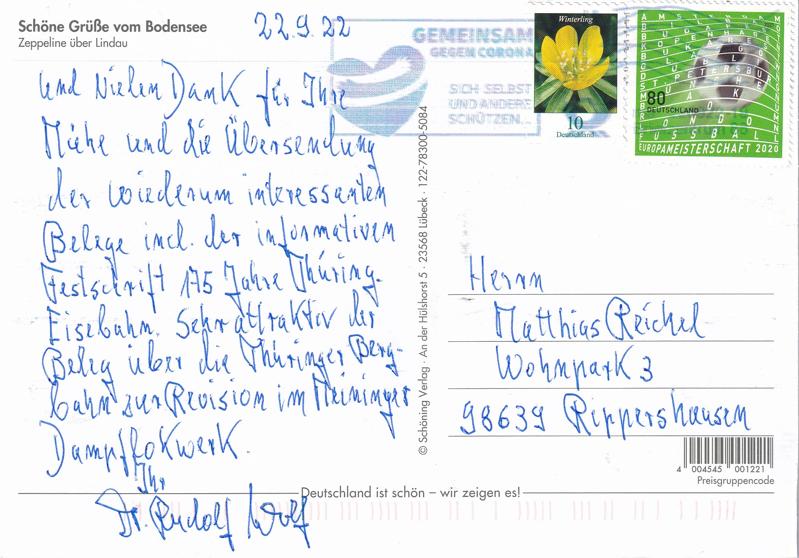 Schöne Grüße vom Bodensee
Zeppeline über Lindau
22.9.22
und Vielen Dank für Ihre
Mühe und die Übersendung
der wiederum interessanten
Belege incl. der informativen
Festschrift 175 Jahre Thüring.
Eisebahn. Sehr attraktiv der
Beleg über die Thüringer Berg-
bahn zur Revision im Meininger
Dampflokwerk.
Ihr
Dr. Rudolf Wolf
© Schöning Verlag · An der Hülshorst 5 · 23568 Lübeck · 122-78300-5084
GEMEINSAM
GEGEN CORONA
SICH SELBST
UND ANDERE
SCHÜTZEN...
Winterling
10
Deutschland
80
DEUTSCHLAND
FUSSBALL
EUROPAMEISTERSCHAFT 2020
Herrn
Matthias Reichel
Wohnpark 3
98639 Rippershausen
4 004545 001221
Preisgruppencode
Deutschland ist schön – wir zeigen es!